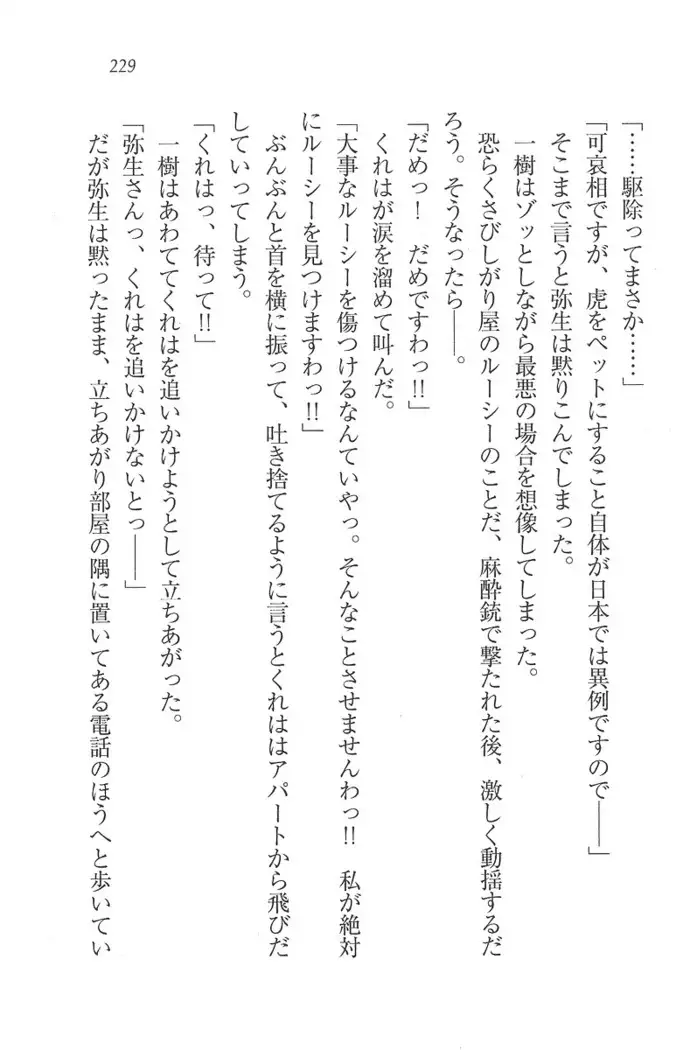 229
「……駆除ってまさか……」
「可哀相ですが、虎をペットにすること自体が日本では異例ですので――」
そこまで言うと弥生は黙りこんでしまった。
一樹はゾッとしながら最悪の場合を想像してしまった。
恐らくさびしがり屋のルーシーのことだ、麻酔銃で撃たれた後、激しく動揺するだ
ろう。そうなったら――。
「だめっ！　だめですわっ!!」
くれはが涙を溜めて叫んだ。
「大事なルーシーを傷つけるなんていやっ。そんなことさせませんわっ!!　私が絶対
にルーシーを見つけますわっ!!」
ぶんぶんと首を横に振って、吐き捨てるように言うとくれははアパートから飛びだ
していってしまう。
「くれはっ、待って!!」
一樹はあわててくれはを追いかけようとして立ちあがった。
「弥生さんっ、くれはを追いかけないとっ――」
だが弥生は黙ったまま、立ちあがり部屋の隅に置いてある電話のほうへと歩いてい